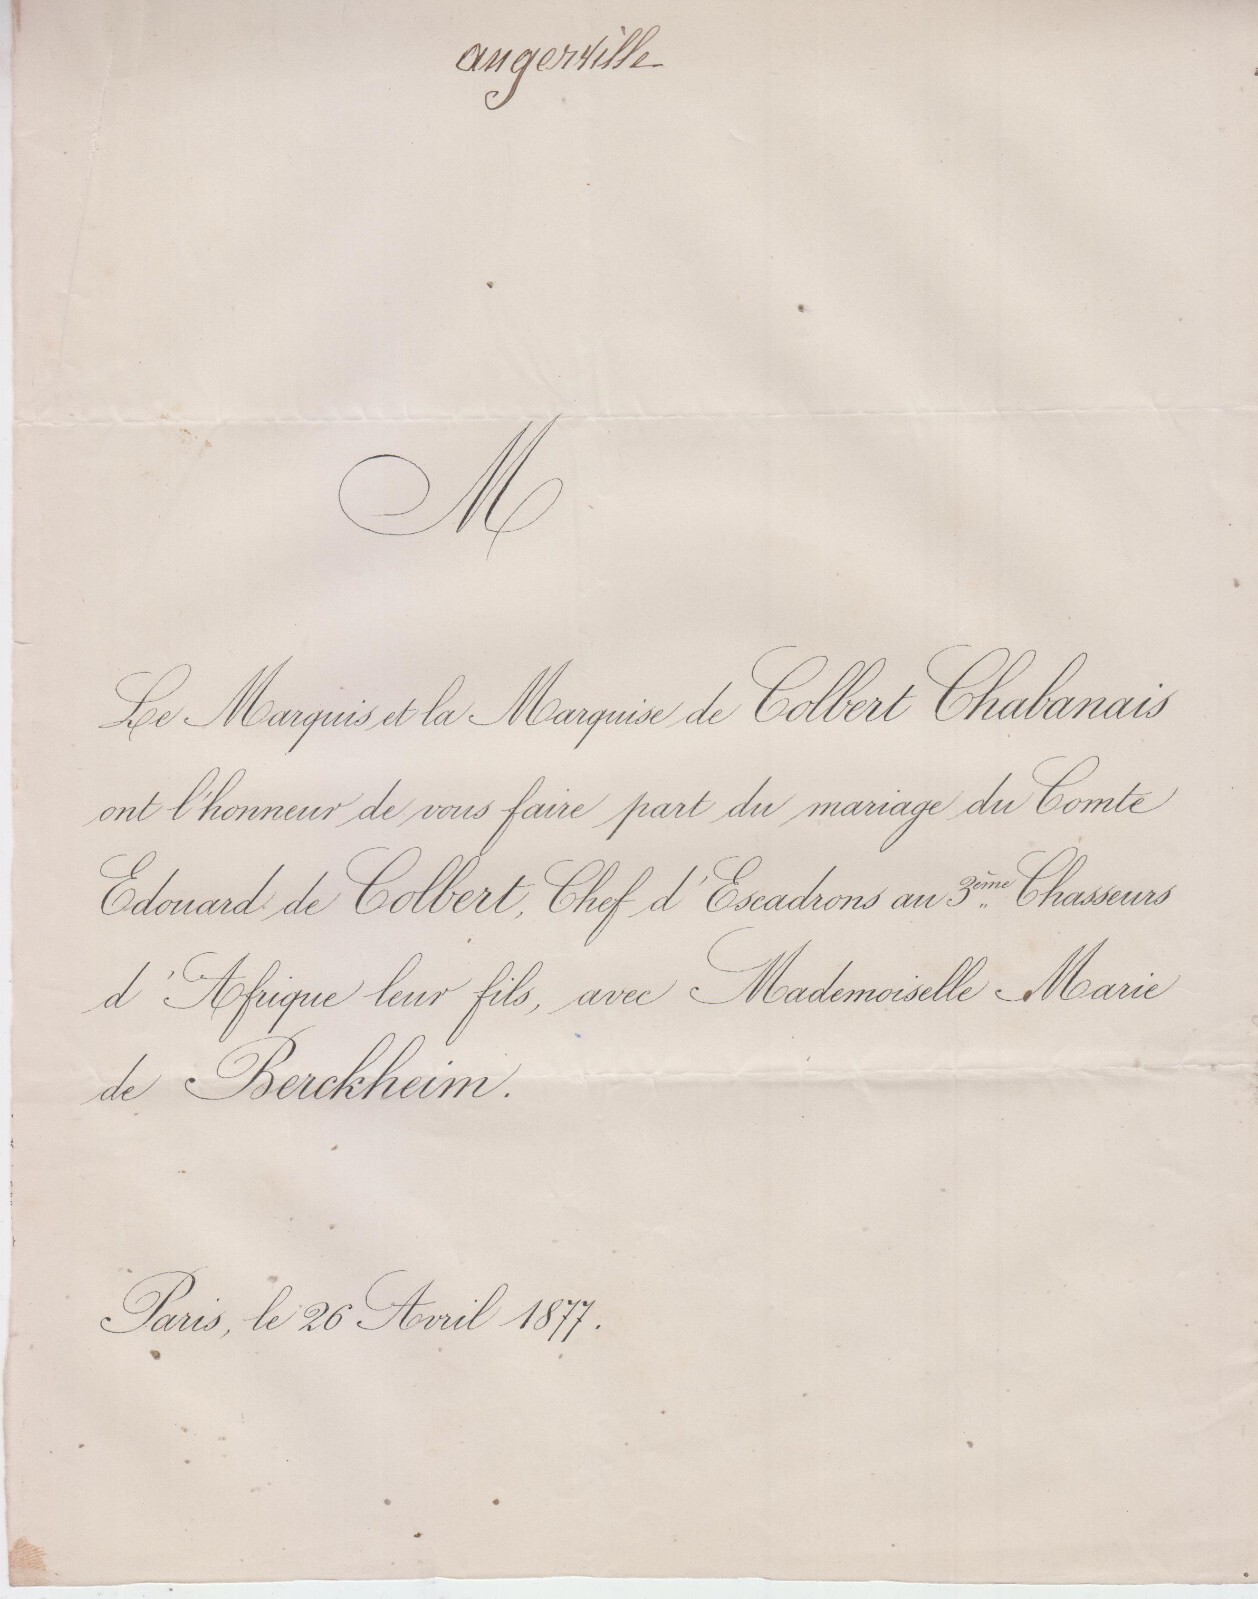 angerville
M
Le Marquis et la Marquise de Colbert Chabanais
ont l'honneur de vous faire part du mariage du Comte
Edouard de Colbert, Chef d'Escadrons au 3ème Chasseurs
d'Afrique leur fils, avec Mademoiselle Marie
de Berckheim.
Paris, le 26 Avril 1877.